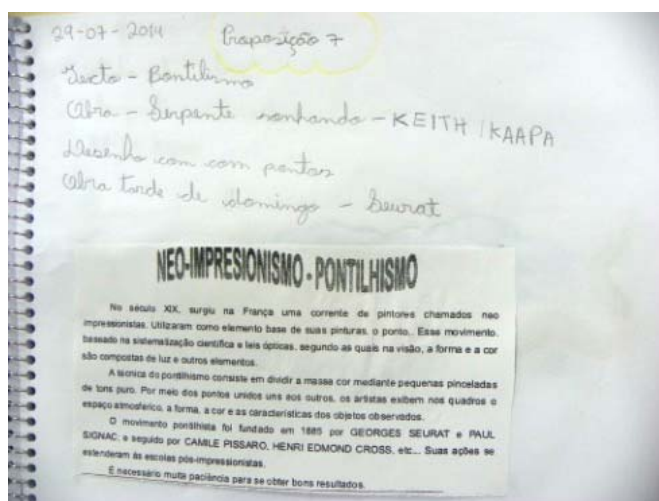 29-07-2014 Proposição 7
Texto - Pontilismo
Obra - Serpente sonhando - KEITH / KAAPA
Desenho com com pontos
Obra tarde de domingo - Seurat
NEO-IMPRESIONISMO - PONTILHISMO
No século XIX, surgiu na França uma corrente de pintores chamados neo
impressionistas. Utilizaram como elemento base de suas pinturas, o ponto.. Esse movimento,
baseado na sistematização científica e leis ópticas, segundo as quais na visão, a forma e a cor
são compostas de luz e outros elementos.
A técnica do pontilhismo consiste em dividir a massa cor mediante pequenas pinceladas
de tons puro. Por meio dos pontos unidos uns aos outros, os artistas exibem nos quadros o
espaço atmosférico, a forma, a cor e as características dos objetos observados.
O movimento pontilhista foi fundado em 1885 por GEORGES SEURAT e PAUL
SIGNAC, e seguido por CAMILE PISSARO, HENRI EDMOND CROSS, etc... Suas ações se
estenderam às escolas pós-impressionistas.
É necessário muita paciência para se obter bons resultados.